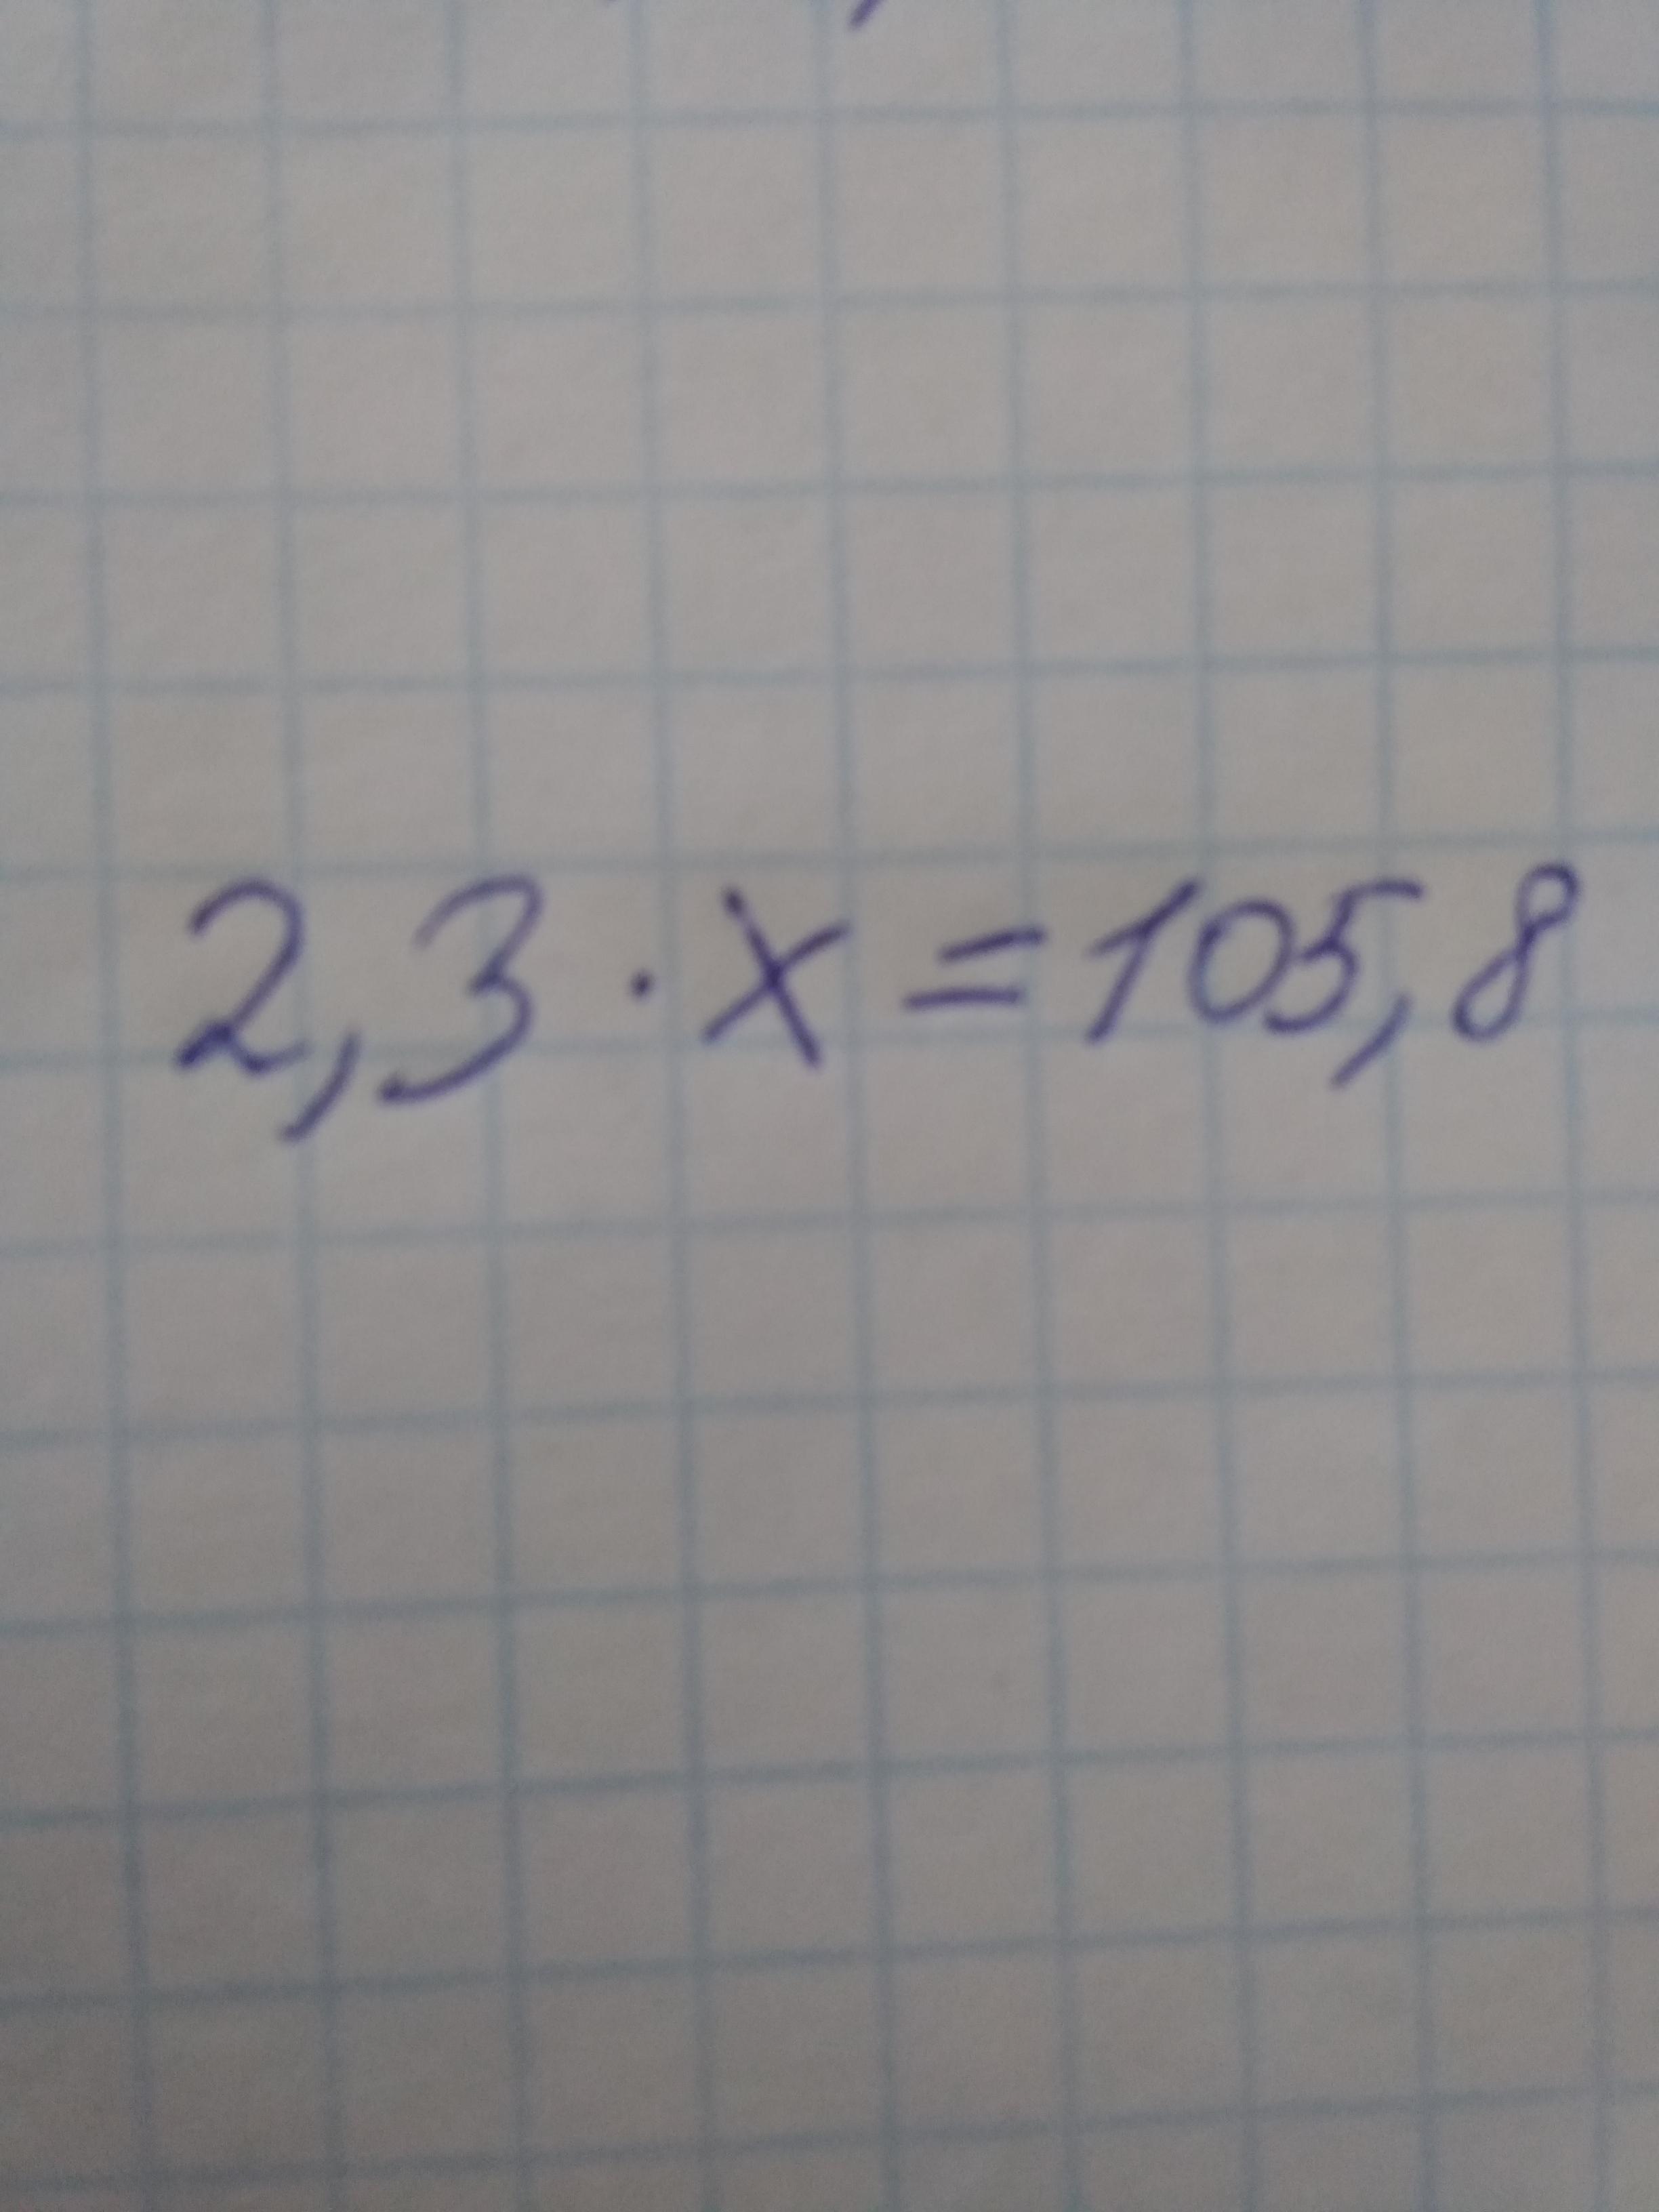 2,3 · x = 105,8